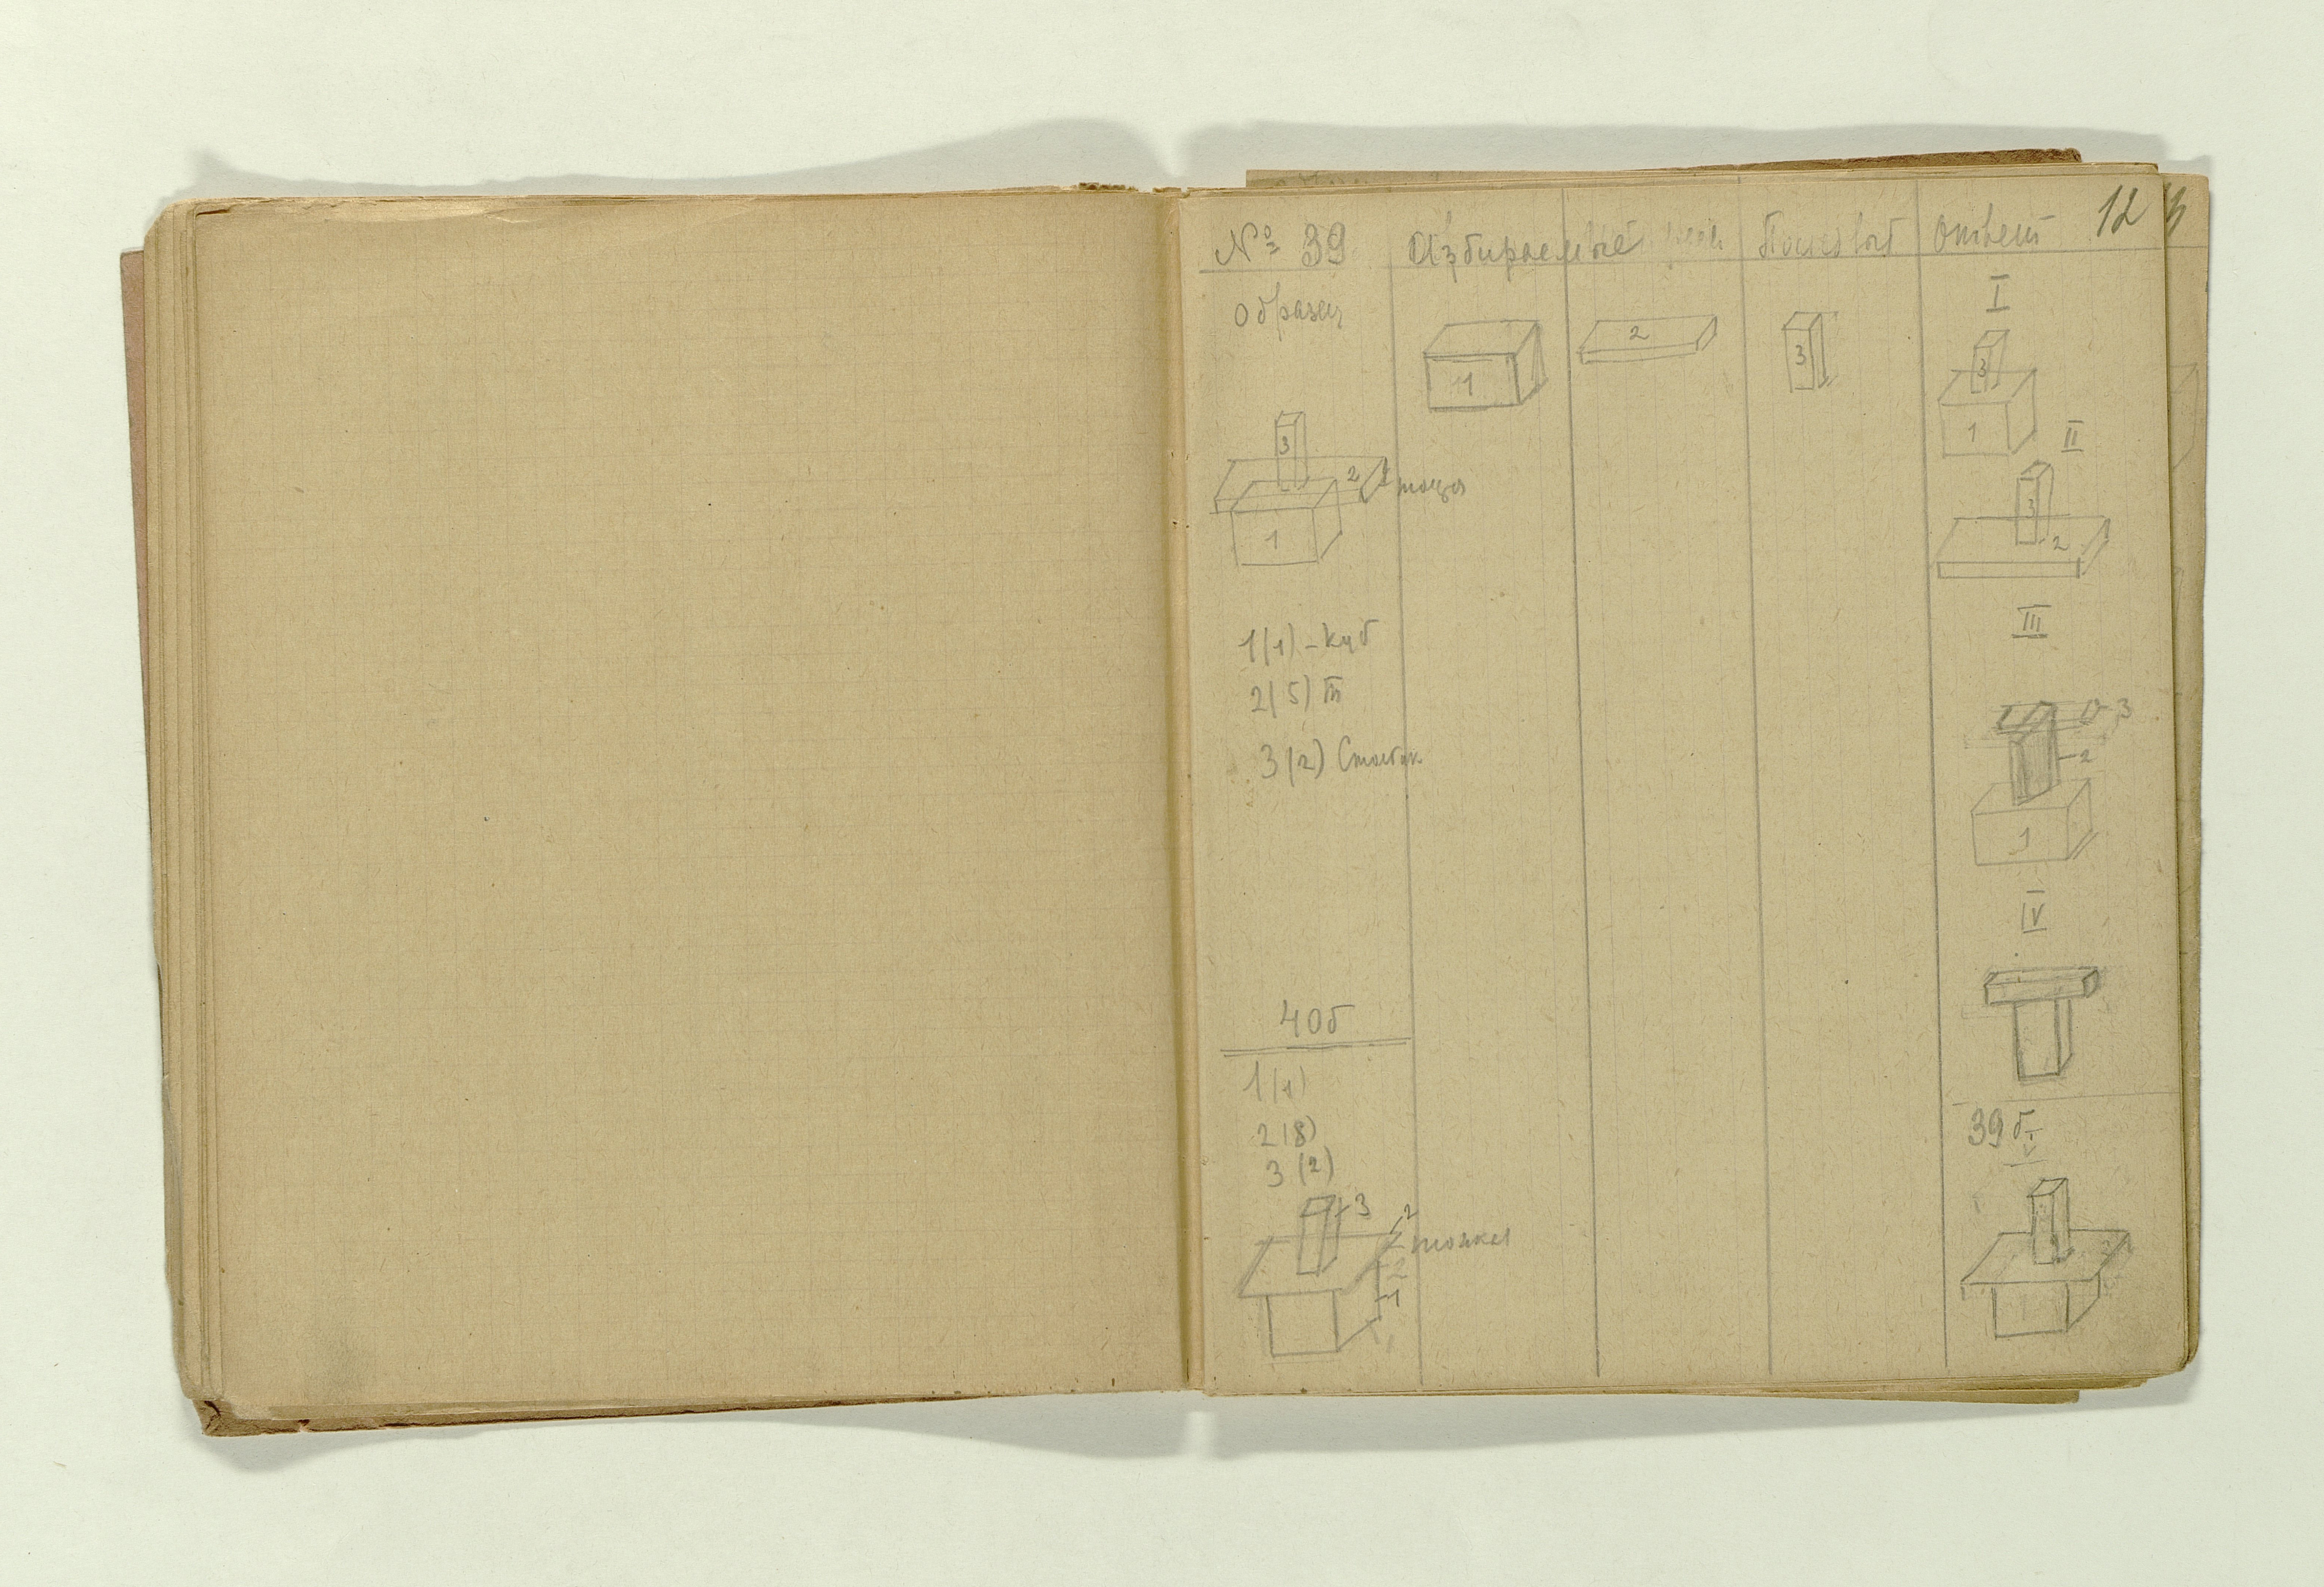 № 39 Избираемые Ответ 12
Образец
1
2
3
I
3
1
3
2
тощая
1
II
3
2
1(1) - куб
2(5) III
3(2) Столбик
III
3
2
1
IV
40б
1(1)
2(8)
3(2)
3
2
тонкая
2
1
39б